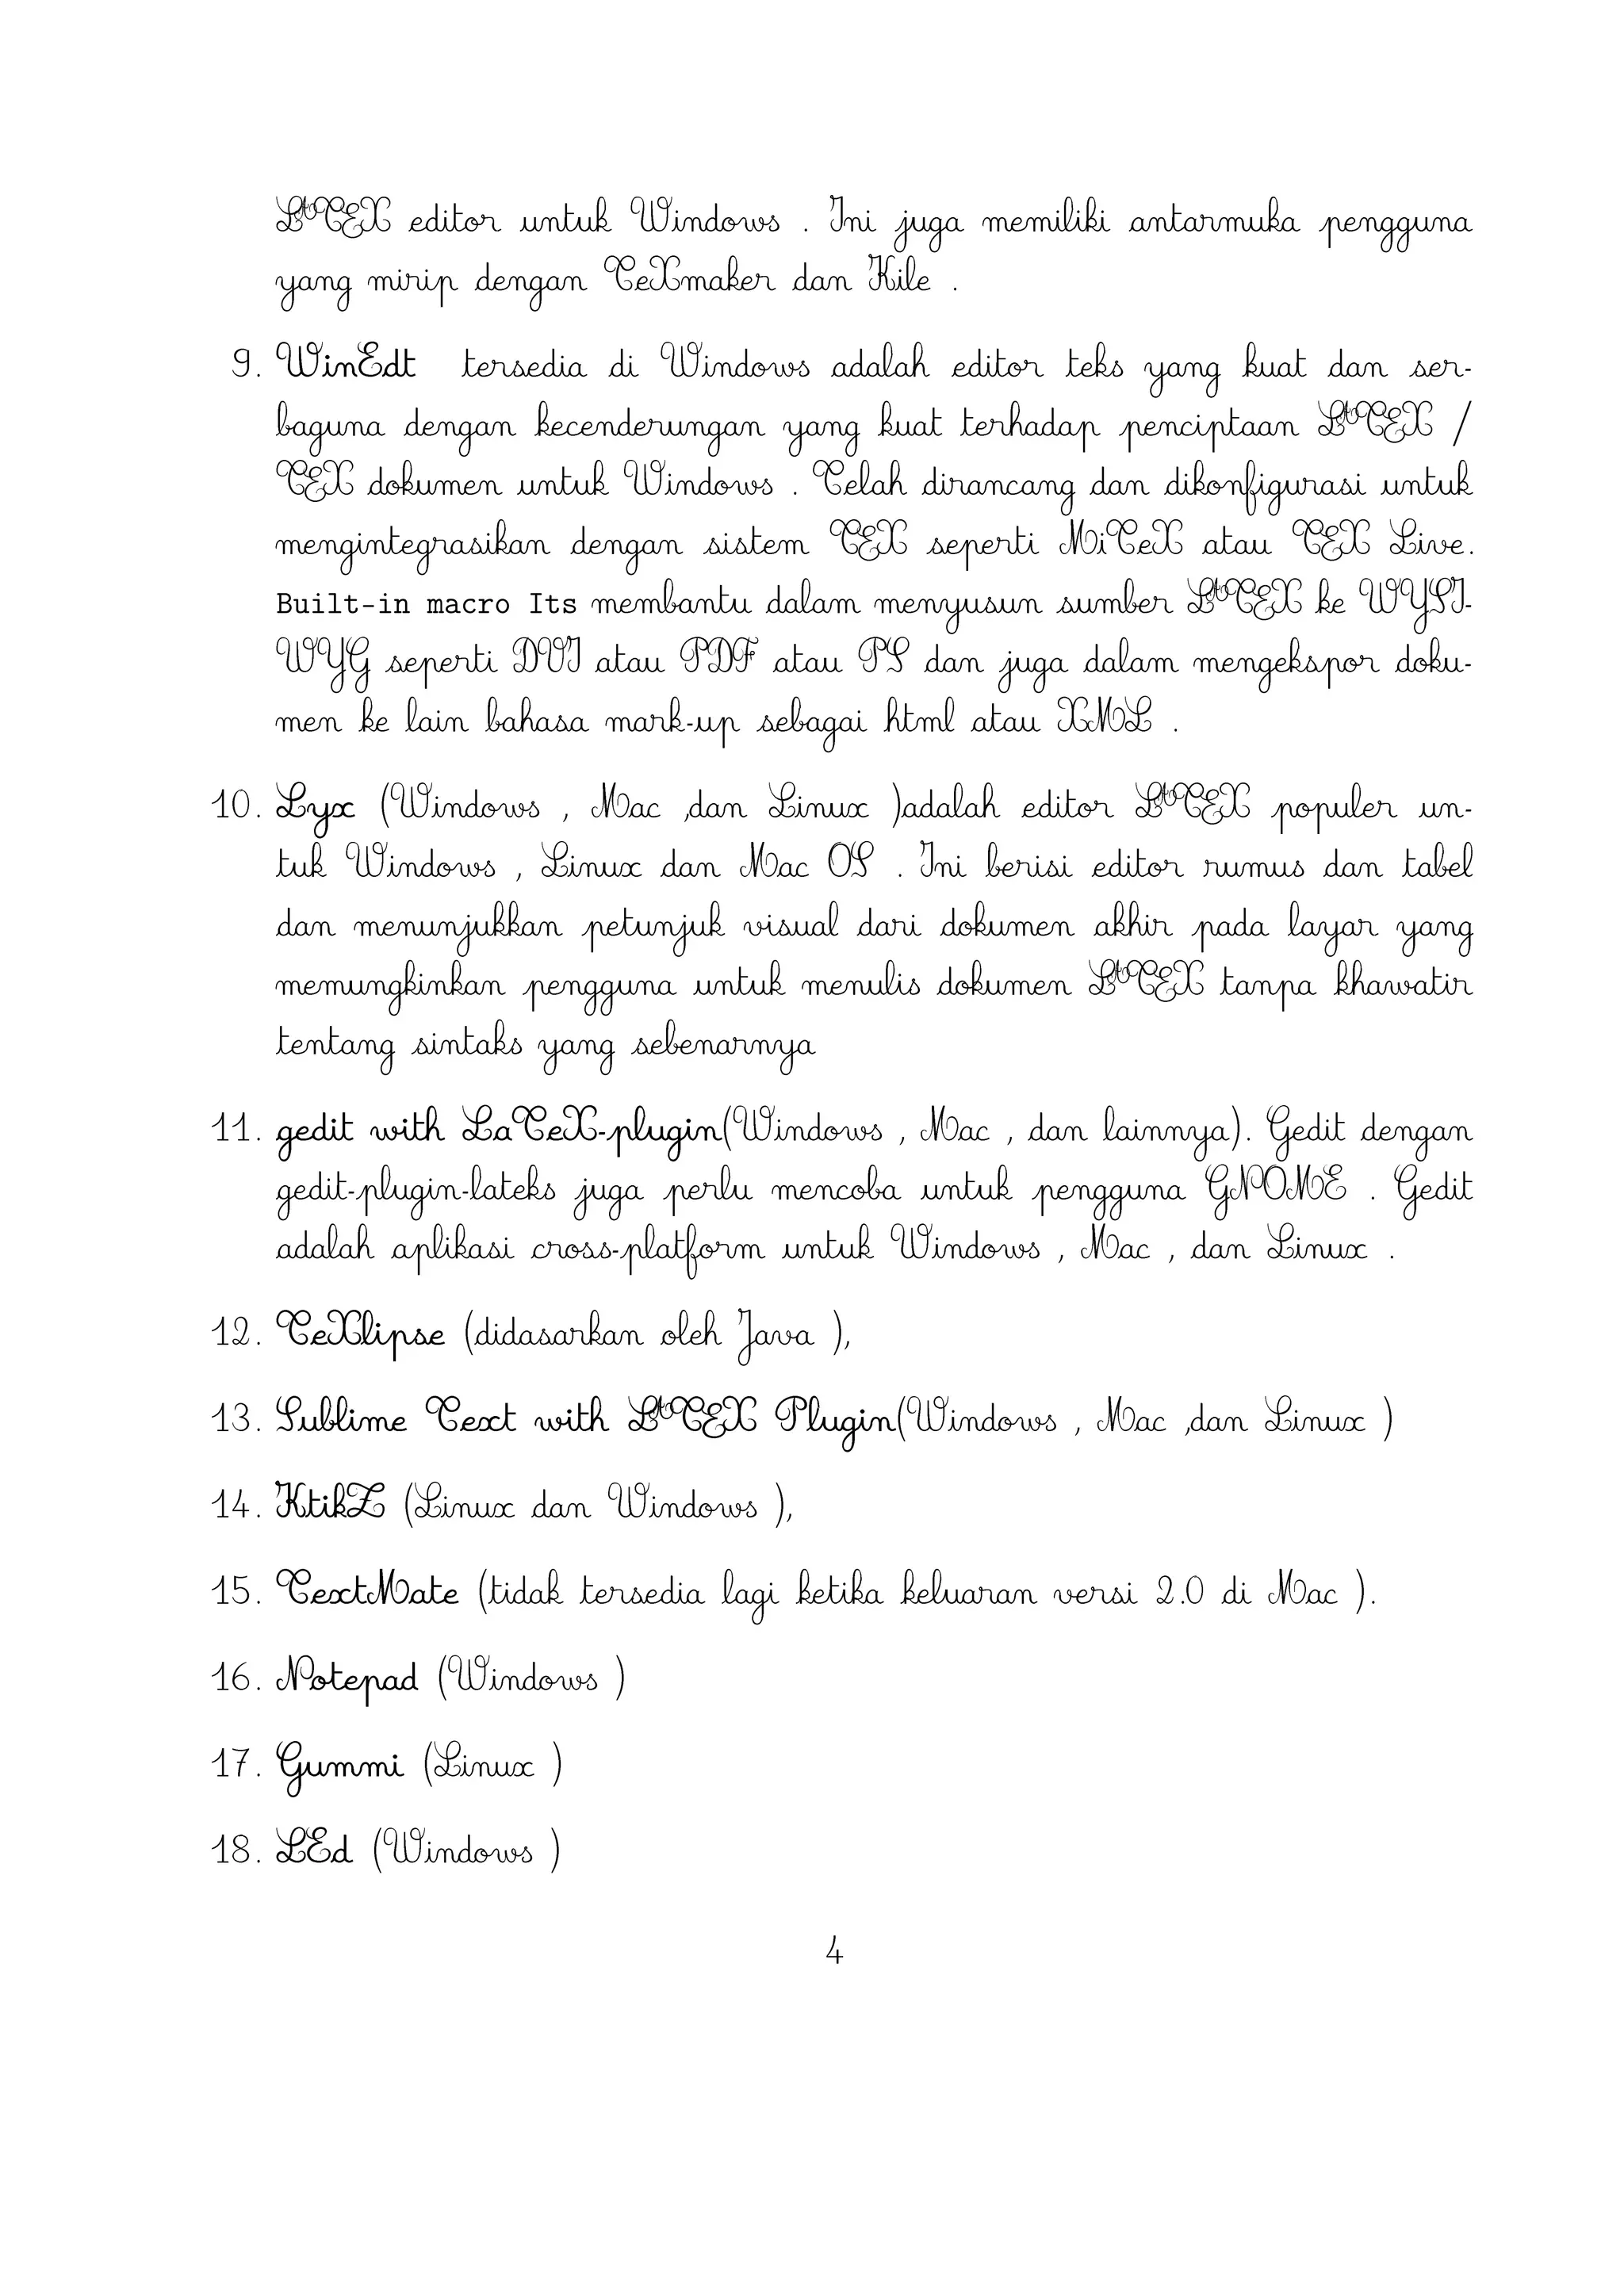 LATEX editor untuk Windows . Ini juga memiliki antarmuka pengguna
yang mirip dengan TeXmaker dan Kile .
9. WinEdt tersedia di Windows adalah editor teks yang kuat dan ser-
baguna dengan kecenderungan yang kuat terhadap penciptaan LATEX /
TEX dokumen untuk Windows . Telah dirancang dan dikonfigurasi untuk
mengintegrasikan dengan sistem TEX seperti MiTeX atau TEX Live.
Built-in macro Its membantu dalam menyusun sumber LATEX ke WYSI-
WYG seperti DVI atau PDF atau PS dan juga dalam mengekspor doku-
men ke lain bahasa mark-up sebagai html atau XML .
10. Lyx (Windows , Mac ,dan Linux )adalah editor LATEX populer un-
tuk Windows , Linux dan Mac OS . Ini berisi editor rumus dan tabel
dan menunjukkan petunjuk visual dari dokumen akhir pada layar yang
memungkinkan pengguna untuk menulis dokumen LATEX tanpa khawatir
tentang sintaks yang sebenarnya
11. gedit with LaTeX-plugin(Windows , Mac , dan lainnya). Gedit dengan
gedit-plugin-lateks juga perlu mencoba untuk pengguna GNOME . Gedit
adalah aplikasi cross-platform untuk Windows , Mac , dan Linux .
12. TeXlipse (didasarkan oleh Java ),
13. Sublime Text with LATEX Plugin(Windows , Mac ,dan Linux )
14. KtikZ (Linux dan Windows ),
15. TextMate (tidak tersedia lagi ketika keluaran versi 2.0 di Mac ).
16. Notepad (Windows )
17. Gummi (Linux )
18. LEd (Windows )
4